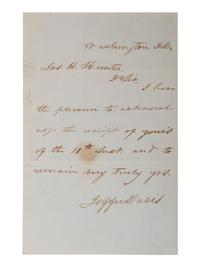 Washington D.C.
Jas. H. Hunter,
Dr Sir,
I have
the pleasure to acknowl-
edge the receipt of yours
of the 18th Inst. and to
remain very truly yrs.
Jeffn Davis